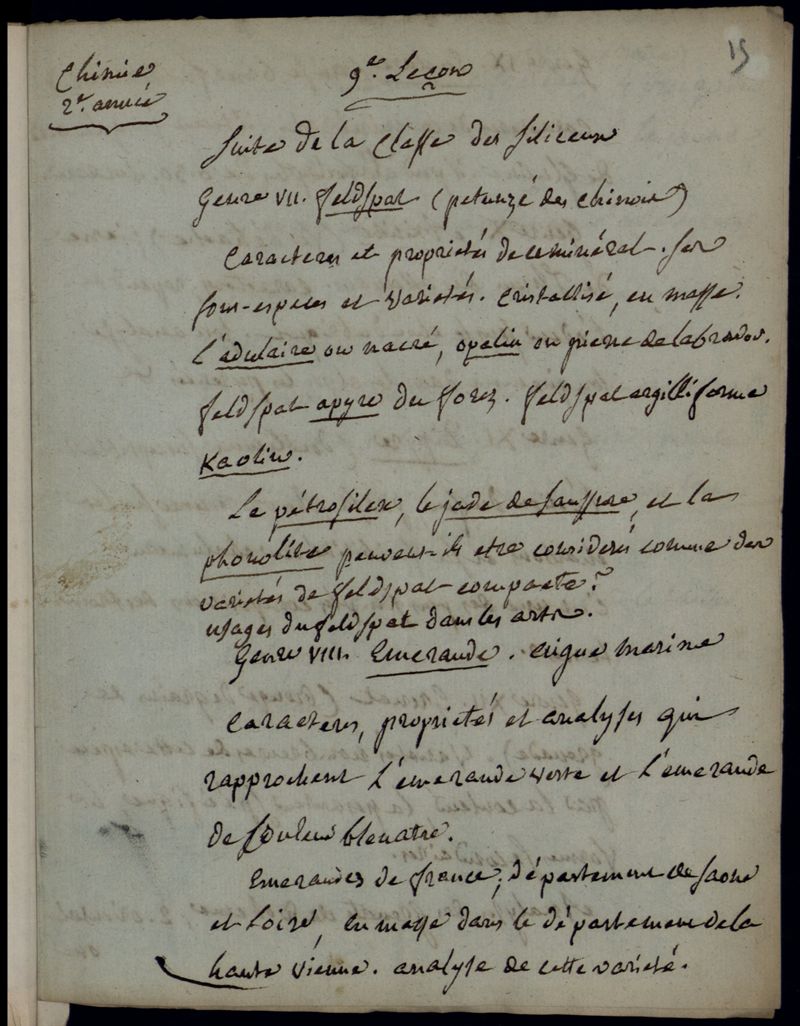 15
Chimie
2.e année
9.e Leçon
Suite de la Classe des Siliceux
Genre VII. feldspat (petunzé des chinois)
Caracteres et proprietés de ce minéral. Ses
sous-especes et varietés. Cristallisé, en masse.
L'adulaire ou nacré, opalin ou pierre de labrador.
feldspat apyre du forez. feldspat argilliforme
Kaolin.
Le pétrosilex, le jade de saussure, et la
phonolite peuvent-ils etre considerés comme des
varietés de feldspat compacte?
usages du feldspat dans les arts.
Genre VIII. Emeraude. aigue marine
Caracteres, proprietés et analyses qui
rapprochent L'emeraude verte et L'emeraude
de couleur bleuatre.
Emeraudes de france; département de saone
et Loire, en masse dans le département de la
haute vienne. analyse de cette varieté.